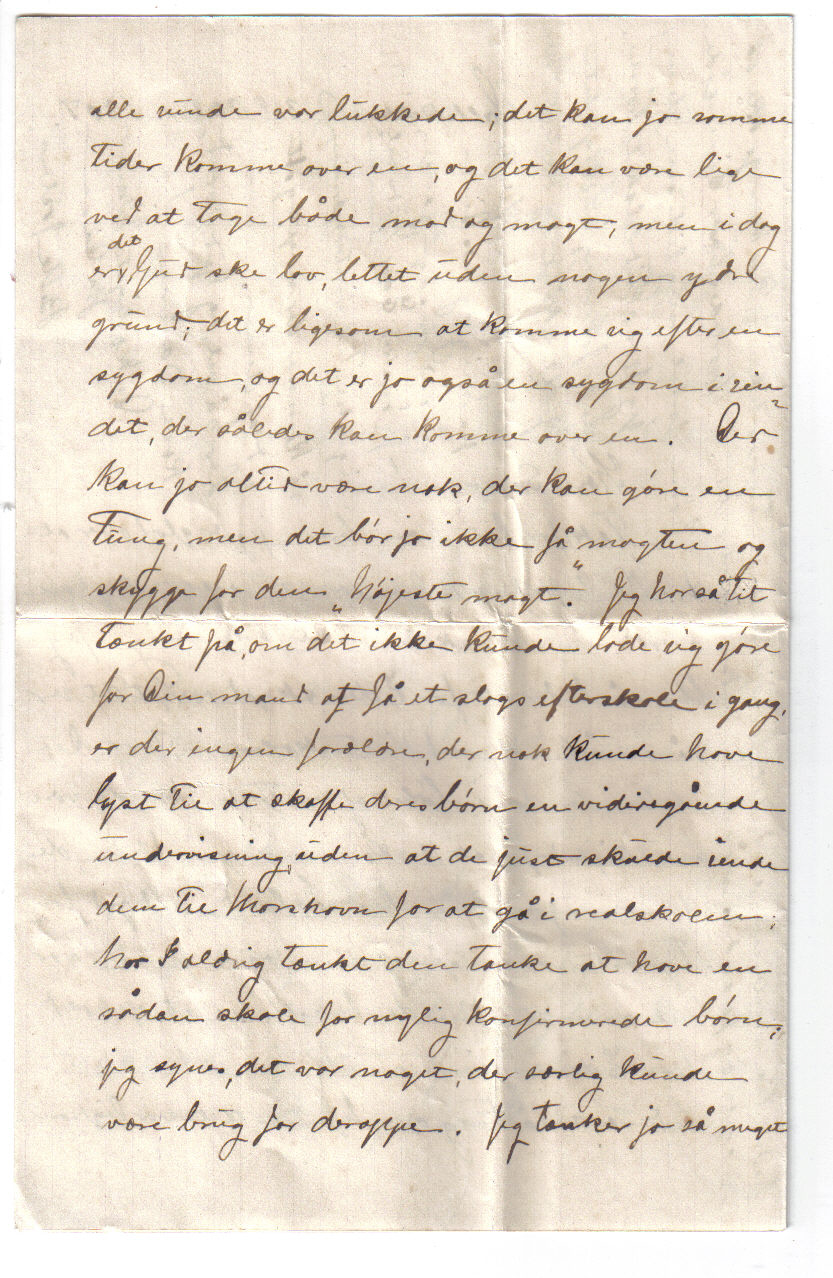 alle vinde var lukkede; det kan jo somme
tider komme over en, og det kan være lige
ved at tage både mod og magt, men i dag
er det Gud ske lov, lettet uden nogen ydre
grund; det er ligesom at komme sig efter en
sygdom, og det er jo også en sygdom i sin-
det, der således kan komme over en. Der
kan jo altid være nok, der kan göre en
tung, men det bör jo ikke få magten og
skygge for den „höjeste magt.“ Jeg har så tit
tænkt på, om det ikke kunde lade sig göre
for Din mand at få et slags efterskole i gang,
er der ingen forældre, der nok kunde have
lyst til at skaffe deres börn en videregående
undervisning, uden at de just skulde sende
dem til Thorshavn for at gå i realskolen;
har I aldrig tænkt den tanke at have en
sådan skole for nylig konfirmerede börn;
jeg synes, det var noget, der særlig kunde
være brug for deroppe. Jeg tænker jo så meget